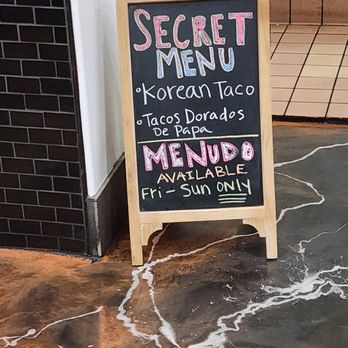 SECRET
MENU
• Korean Taco
• Tacos Dorados
De Papa
MENUDO
AVAILABLE
Fri - Sun ONLY